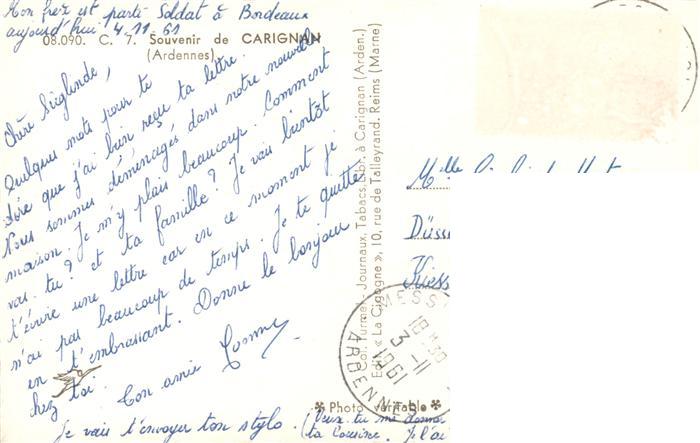 Mon frère est parti Soldat à Bordeaux
aujourd'hui 4.11.61
08.090. C. 7. Souvenir de CARIGNAN
(Ardennes)
Chère Sieglinde,
Quelques mots pour te
dire que j'ai bien reçu ta lettre.
Nous sommes déménagés dans notre nouvelle
maison. Je m'y plais beaucoup. Comment
vas-tu? et ta famille? Je vais bientôt
t'écrire une lettre car en ce moment je
n'ai pas beaucoup de temps. Je te quitte
en t'embrassant. Donne le bonjour
chez toi.
Ton amie
Je vais t'envoyer ton stylo. (Veux-tu me donner
ta cousine. J'ai
Col. Turmel, Journaux, Tabacs, Libr. à Carignan (Arden.)
Edit. « La Cigogne », 10, rue de Talleyrand. Reims (Marne)
✽ Photo véritable ✽
Melle
MESSI
18 H30
3 -11
1961
ARDENNES